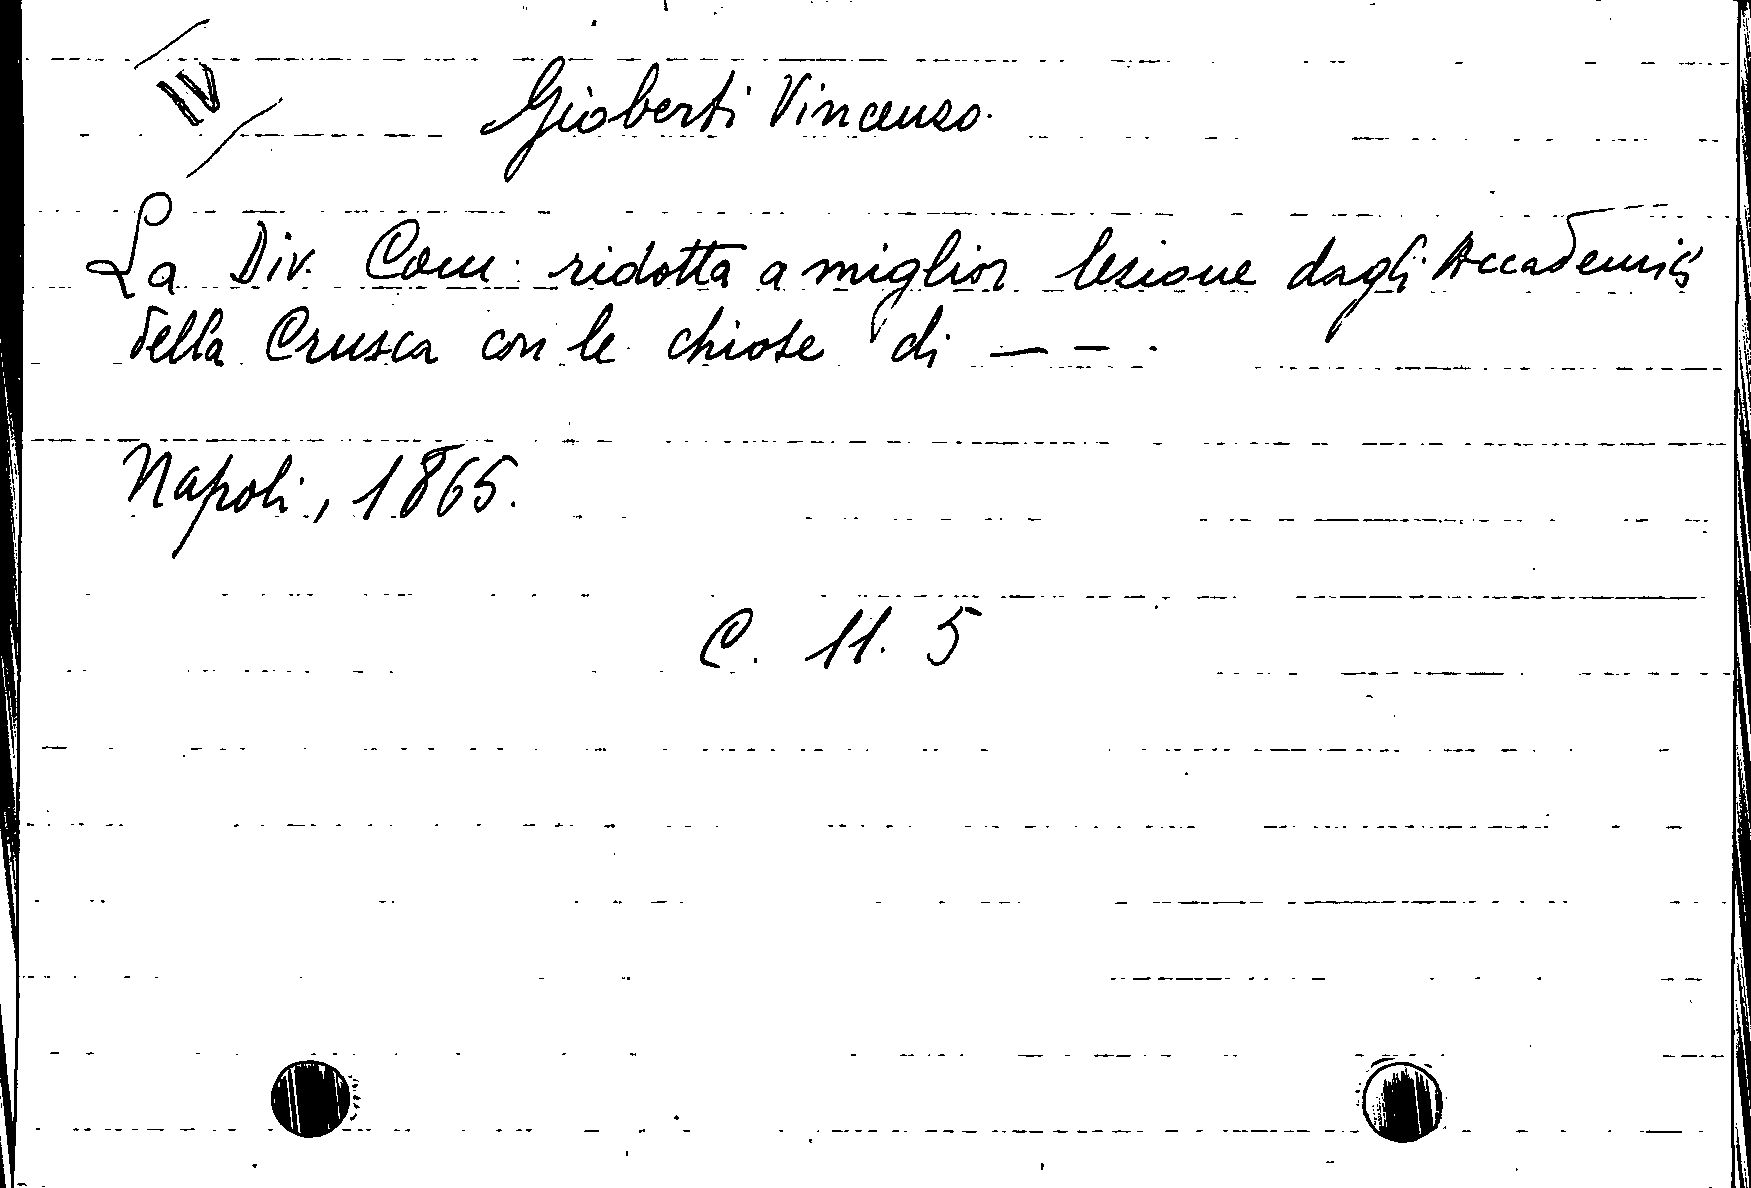 IV
Gioberti Vincenzo.
La Div. Com. ridotta a miglior lezione dagli Accademici
della Crusca con le chiose di — — .
Napoli, 1865.
C. 11. 5